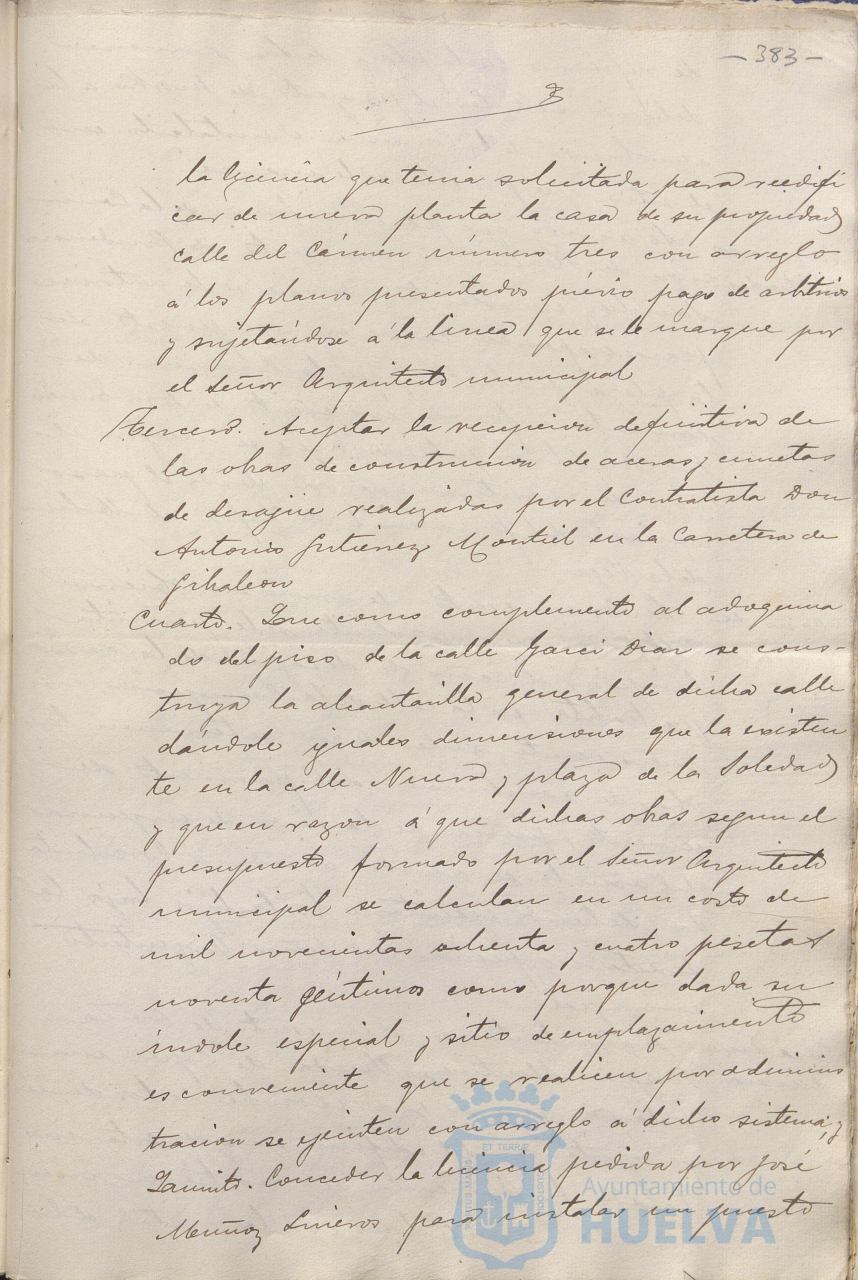 - 383 -
la licencia que tenia solicitada para reedifi
car de nueva planta la casa de su propiedad
calle del Cármen número tres con arreglo
á los planos presentados prévio pago de arbitrios
y sujetándose á la linea que se le marque por
el Señor Arquitecto municipal
Tercero. Aceptar la recepcion definitiva de
las obras de construccion de aceras y cunetas
de desagüe realizadas por el Contratista Don
Antonio Gutierrez Montiel en la Carretera de
Gibraleon
Cuarto. Que como complemento al adoquina
do del piso de la calle Garci Diaz se cons-
truya la alcantarilla general de dicha calle
dándole iguales dimensiones que la existen
te en la calle Nueva y plaza de la Soledad
y que en razon á que dichas obras segun el
presupuesto formado por el Señor Arquitecto
municipal se calculan en un costo de
mil novecientas ochenta y cuatro pesetas
noventa céntimos como porque dada su
índole especial y sitio de emplazamiento
es conveniente que se realicen por adminis
tracion se ejecuten con arreglo á dicho sistema; y
Quinto. Conceder la licencia pedida por José
Muñoz Lineros para instalar un puesto
Ayuntamiento de
HUELVA